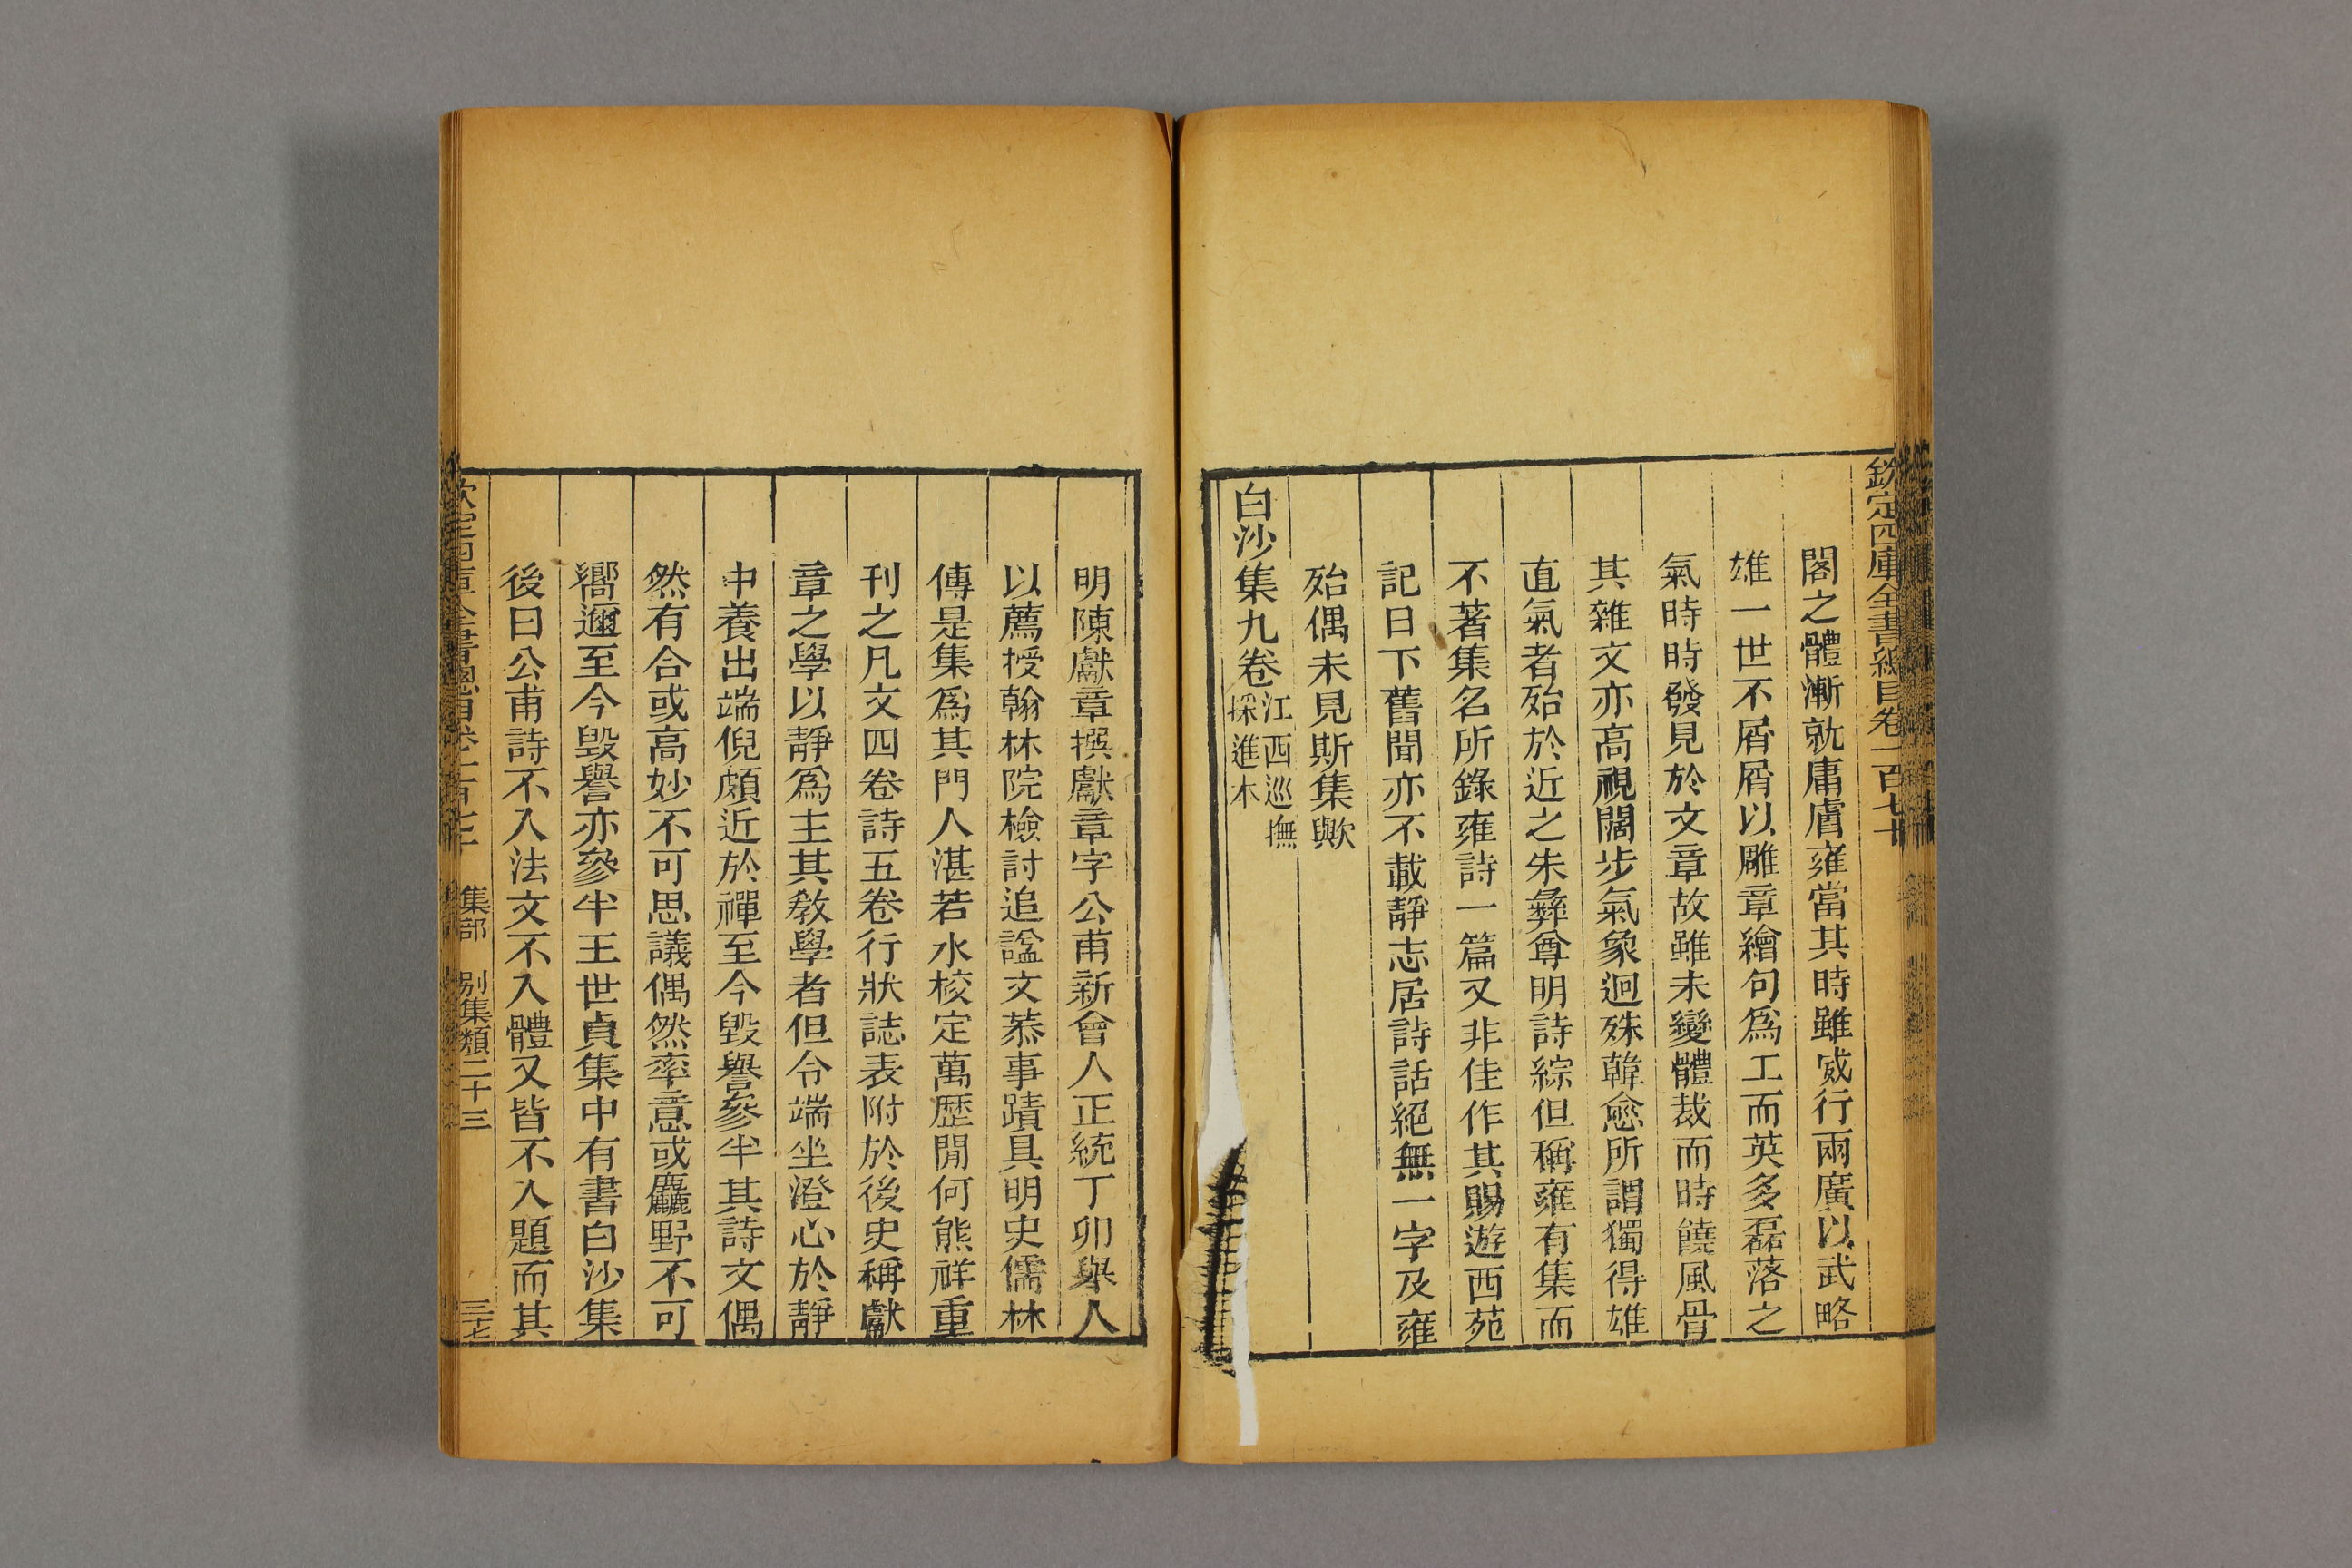 欽定四庫全書總目卷一百七十
閣之體漸就庸膚雍當其時雖威行兩廣以武略
雄一世不屑屑以雕章繪句爲工而英多磊落之
氣時時發見於文章故雖未變體裁而時饒風骨
其雜文亦高視闊步氣象迥殊韓愈所謂獨得雄
直氣者殆於近之朱彝尊明詩綜但稱雍有集而
不著集名所錄雍詩一篇又非佳作其賜遊西苑
記日下舊聞亦不載靜志居詩話絕無一字及雍
殆偶未見斯集歟
白沙集九卷江西巡撫
採進本
明陳獻章撰獻章字公甫新會人正統丁卯舉人
以薦授翰林院檢討追諡文恭事蹟具明史儒林
傳是集爲其門人湛若水校定萬歷閒何熊祥重
刊之凡文四卷詩五卷行狀誌表附於後史稱獻
章之學以靜爲主其敎學者但令端坐澄心於靜
中養出端倪頗近於禪至今毀譽參半其詩文偶
然有合或高妙不可思議偶然率意或麤野不可
嚮邇至今毀譽亦參半王世貞集中有書白沙集
後曰公甫詩不入法文不入體又皆不入題而其
欽定四庫全書總目卷一百七十 集部 別集類二十三 三十七